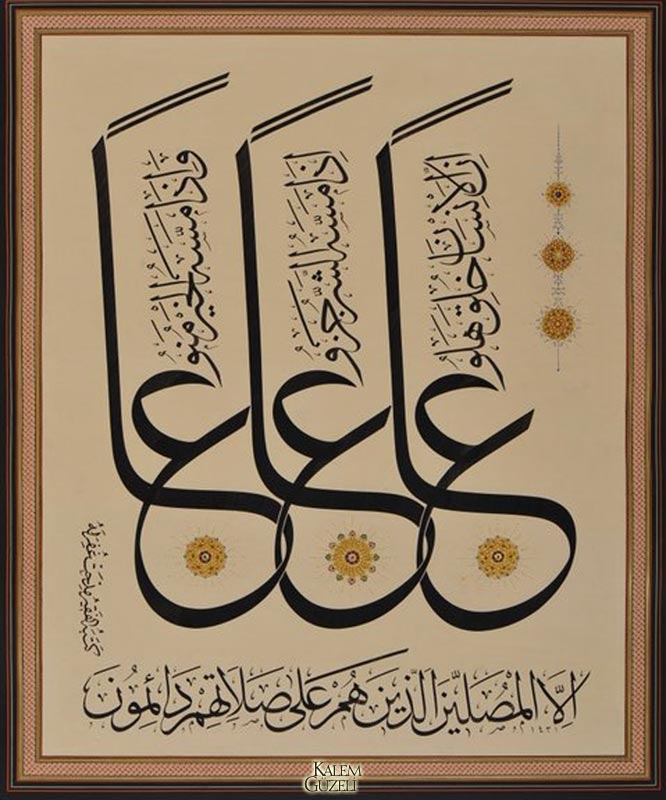 إن الإنسان خلق هلوعا
إذا مسه الشر جزوعا
وإذا مسه الخير منوعا
إلا المصلين الذين هم على صلاتهم دائمون
١٤٣١
كتبه الفقير غفر له
KALEM
GÜZELİ